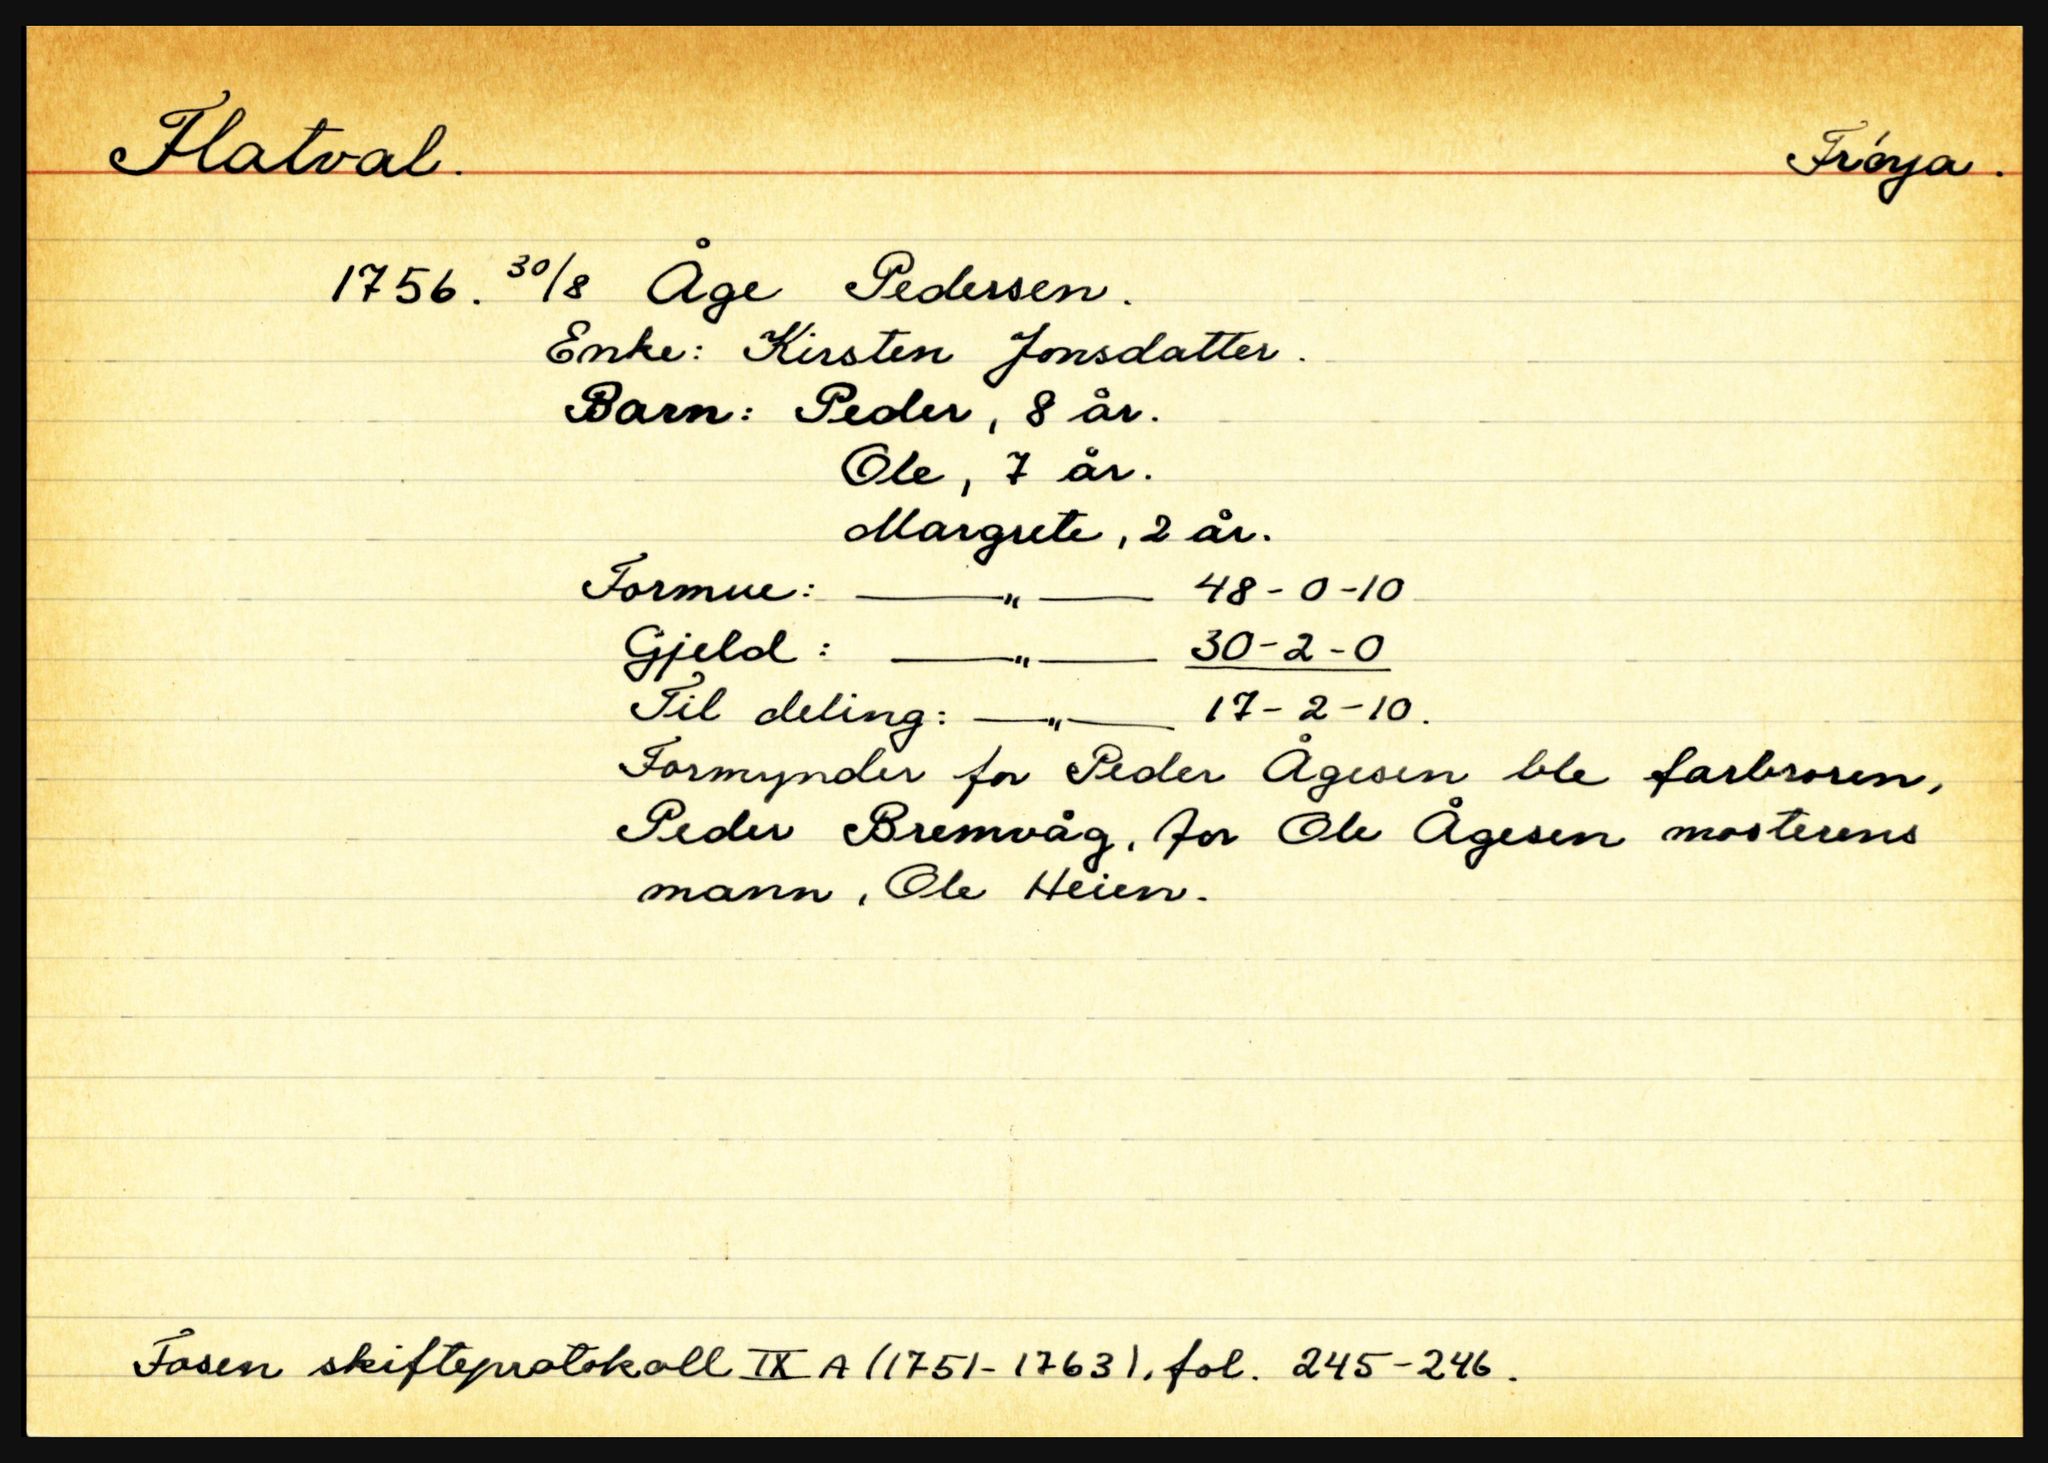 Flatval. Frøya.
1756. 30/8 Åge Pedersen.
Enke: Kirsten Jonsdatter.
Barn: Peder, 8 år.
Ole, 7 år.
Margrete, 2 år.
Formue: —"— 48-0-10
Gjeld: —"— 30-2-0
Til deling: —"— 17-2-10.
Formynder for Peder Ågesen ble farbroren,
Peder Bremvåg, for Ole Ågesen mosterens
mann, Ole Heien.
Fosen skifteprotokoll IX A (1751-1763), fol. 245-246.